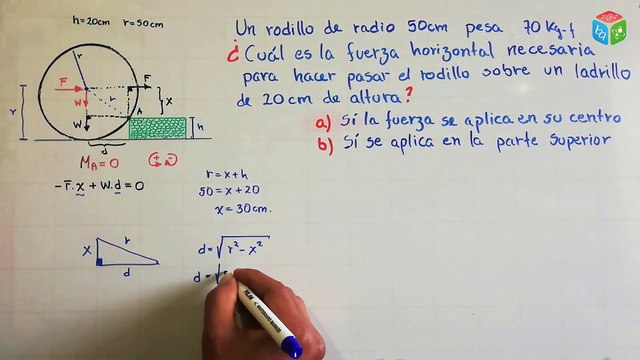 h=20cm r=50cm
Un rodillo de radio 50cm pesa 70 Kg-f
¿Cuál es la fuerza horizontal necesaria
para hacer pasar el rodillo sobre un ladrillo
de 20cm de altura?
a) Sí la fuerza se aplica en su centro
b) Sí se aplica en la parte superior
r
F
F
W
r
x
r
W
A
h
d
MA=0
+ -
-F.x + W.d = 0
r = x+h
50 = x+20
x = 30cm.
x
r
d
d = √r² - x²
d = √